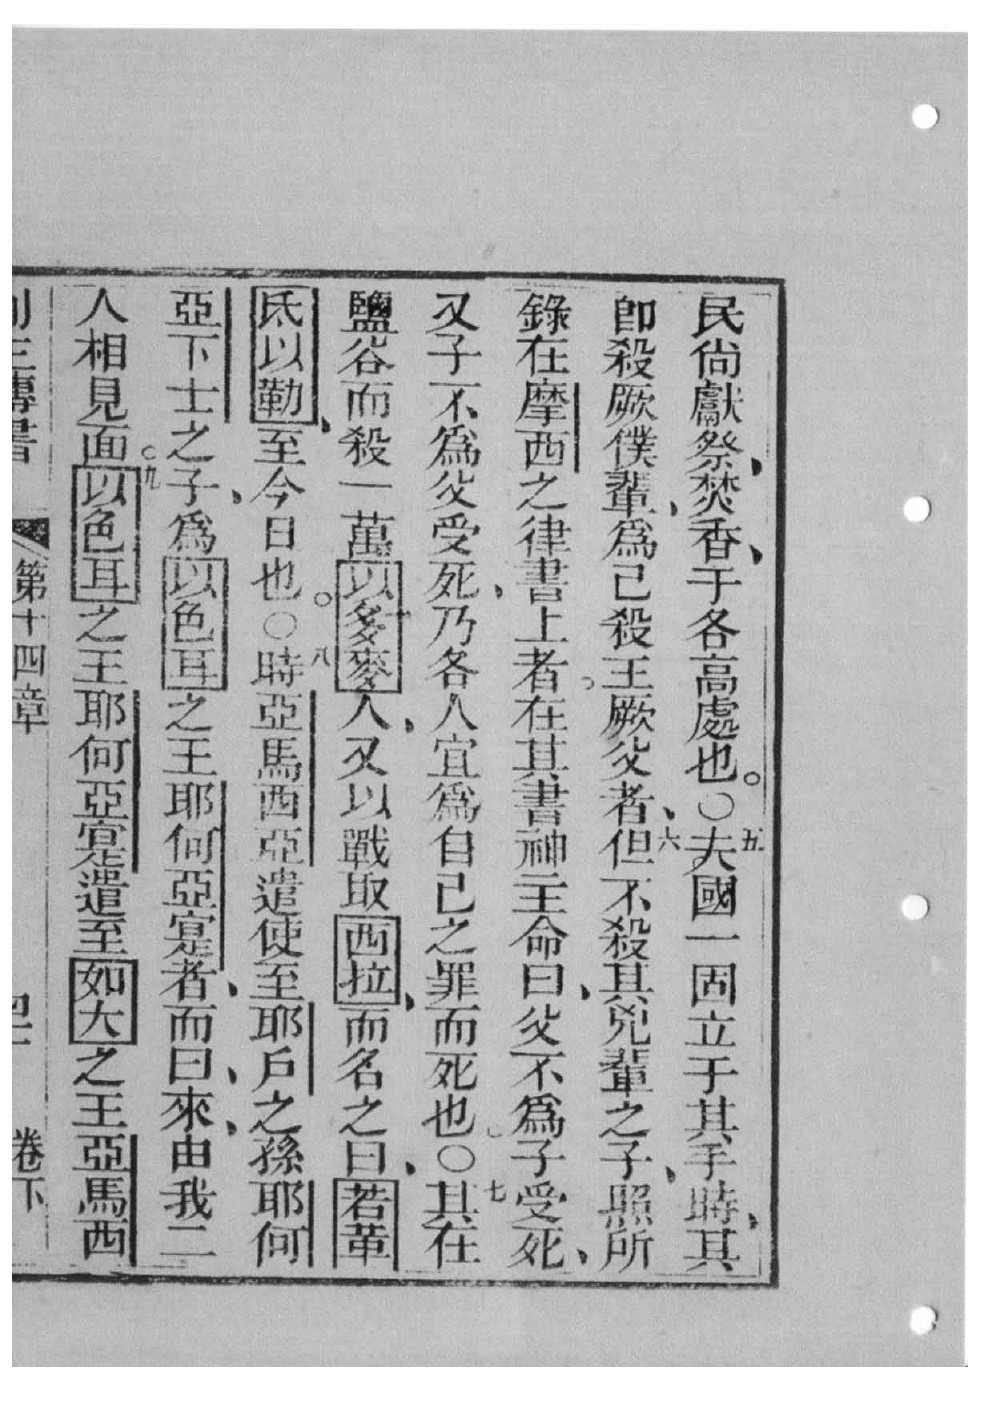 民尚獻祭、焚香、于各高處也。〇五夫國一固立于其手時、其
即殺厥僕輩、爲己殺王厥父者、六但不殺其兇輩之子、照所
錄在摩西之律書上者。在其書神主命曰、父不爲子受死、
又子不爲父受死、乃各人宜爲自己之罪而死也。〇七其在
鹽谷而殺一萬以多麥人、又以戰取西拉、而名之曰、若革
氐以勒、至今日也。〇八時亞馬西亞遣使至耶戶之孫耶何
亞下士之子、爲以色耳之王耶何亞寔者、而曰、來、由我二
人相見面。九以色耳之王耶何亞寔遣至如大之王亞馬西
列王傳書 第十四章 卷下